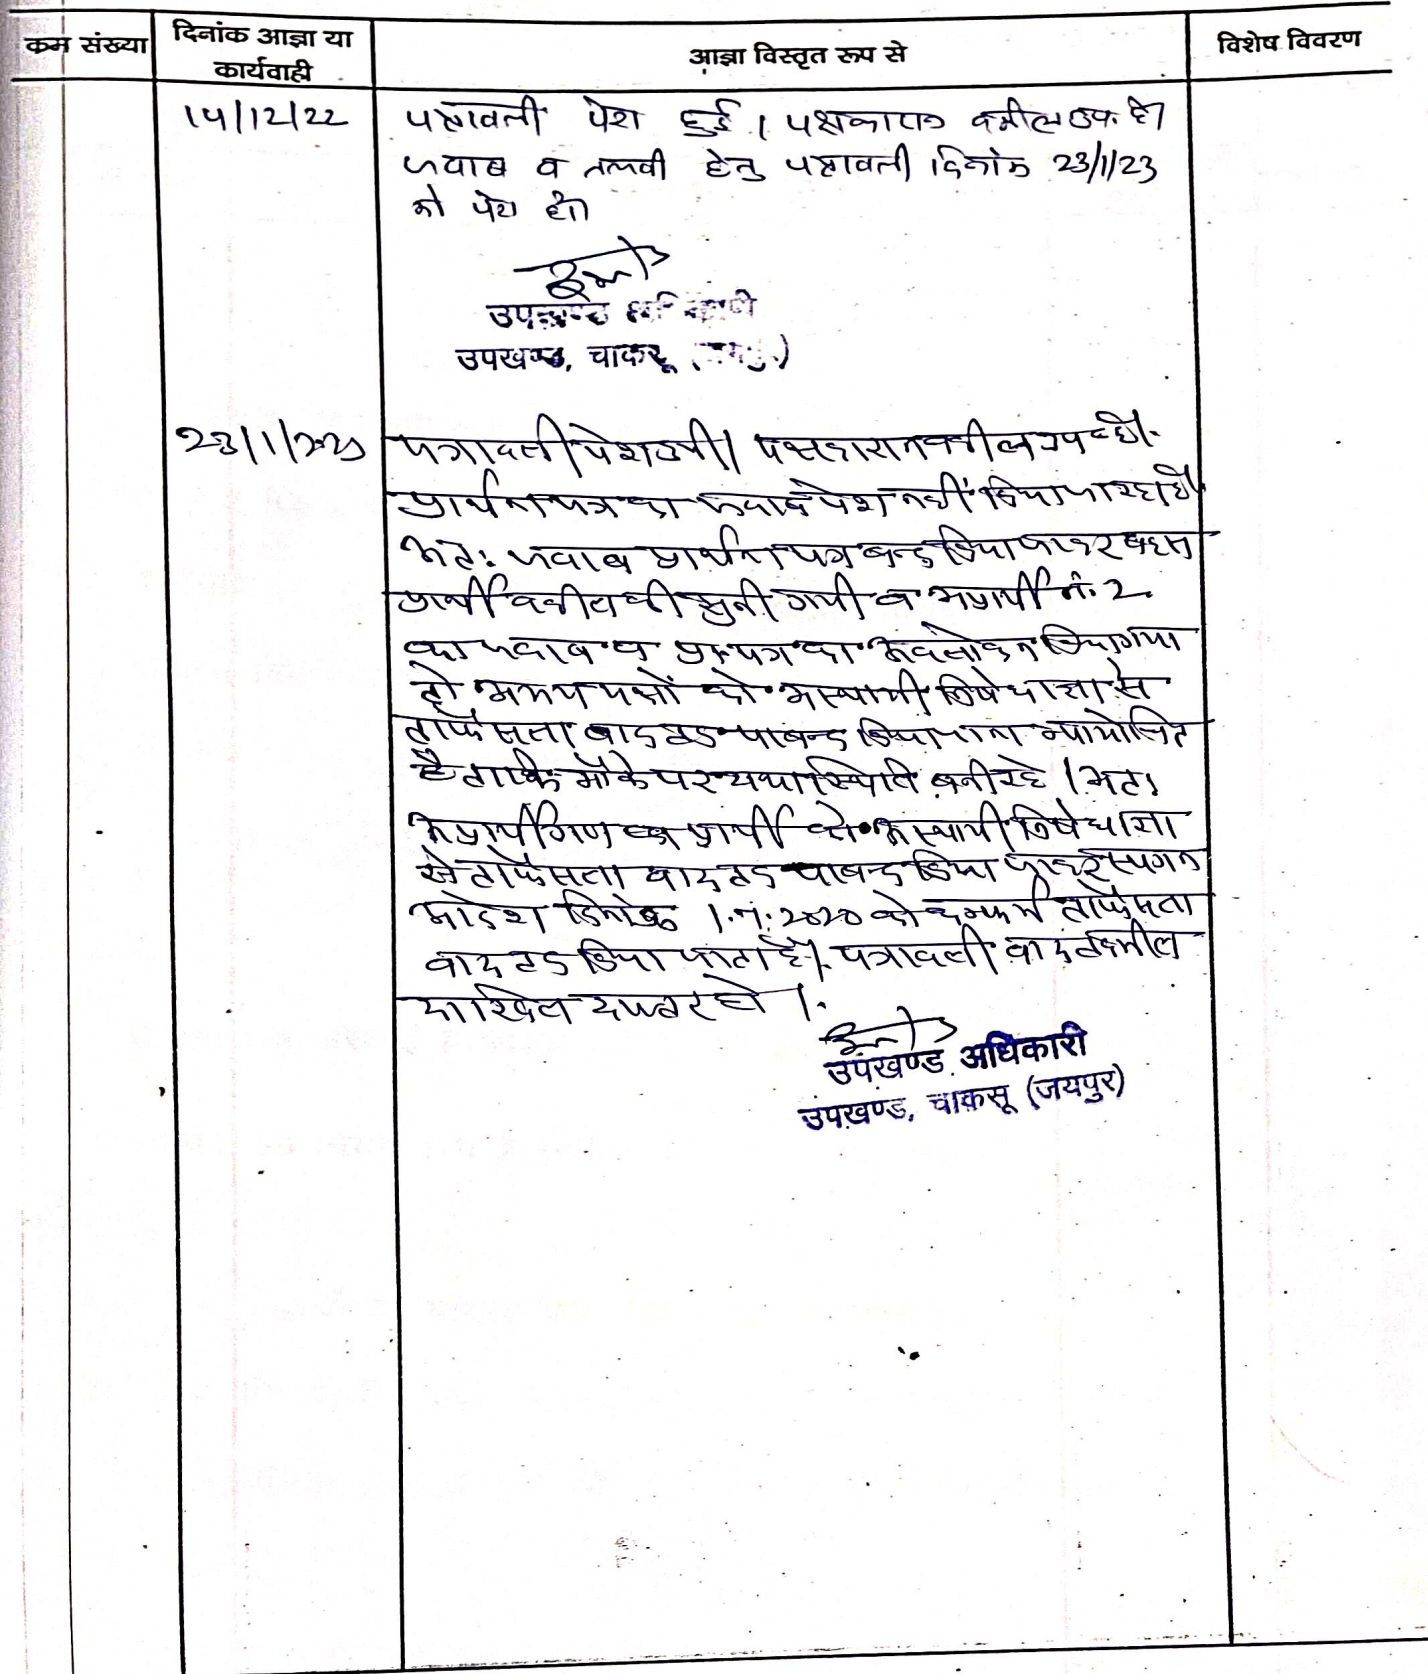 कम संख्या
दिनांक आज्ञा या
कार्यवाही
आज्ञा विस्तृत रूप से
विशेष विवरण
14/12/22
पत्रावली पेश हुई। पक्षकारान वकील उप. है।
जवाब व तलवी हेतु पत्रावली दिनांक 23/1/23
को पेश हो।
उपखण्ड अधिकारी
उपखण्ड, चाकसू (जयपुर)
23/1/2023
पत्रावली पेश हुयी। पक्षकारान वकील उप. है।
प्रार्थना पत्र का जवाब पेश नहीं किया जा रहा है।
अतः जवाब प्रार्थना पत्र बन्द किया जाकर बहस
प्रार्थी वकील की सुनी गयी व अप्रार्थी नं. 2
का जवाब व प्रा. पत्र का अवलोकन किया गया
तो उभय पक्षों को अस्थायी निषेधाज्ञा से
ताफैसला वाद पाबन्द किया जाना न्यायोचित
है ताकि मौके पर यथास्थिति बनी रहे। अतः
अप्रार्थीगण व प्रार्थी को अस्थायी निषेधाज्ञा
से ताफैसला वाद पाबन्द किया जाकर स्थगन
आदेश दिनांक 2020 को कन्फर्म ताफैसला
वाद किया जाता है। पत्रावली वाद
दाखिल दफ्तर हो।
उपखण्ड अधिकारी
उपखण्ड, चाकसू (जयपुर)